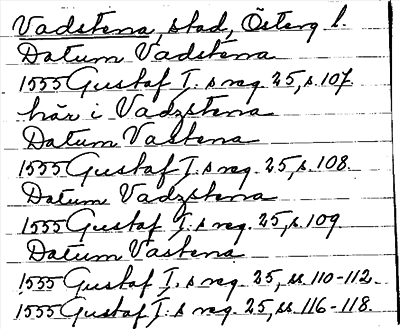 Vadstena, stad, Österg l.
Datum Vadstena
1555 Gustaf I:s reg. 25, s. 107.
här i Vadzstena
Datum Vastena
1555 Gustaf I:s reg. 25, s. 108.
Datum Vadzstena
1555 Gustaf I:s reg. 25, s. 109.
Datum Vastena
1555 Gustaf I:s reg. 25, ss. 110-112.
1555 Gustaf I:s reg. 25, ss. 116-118.